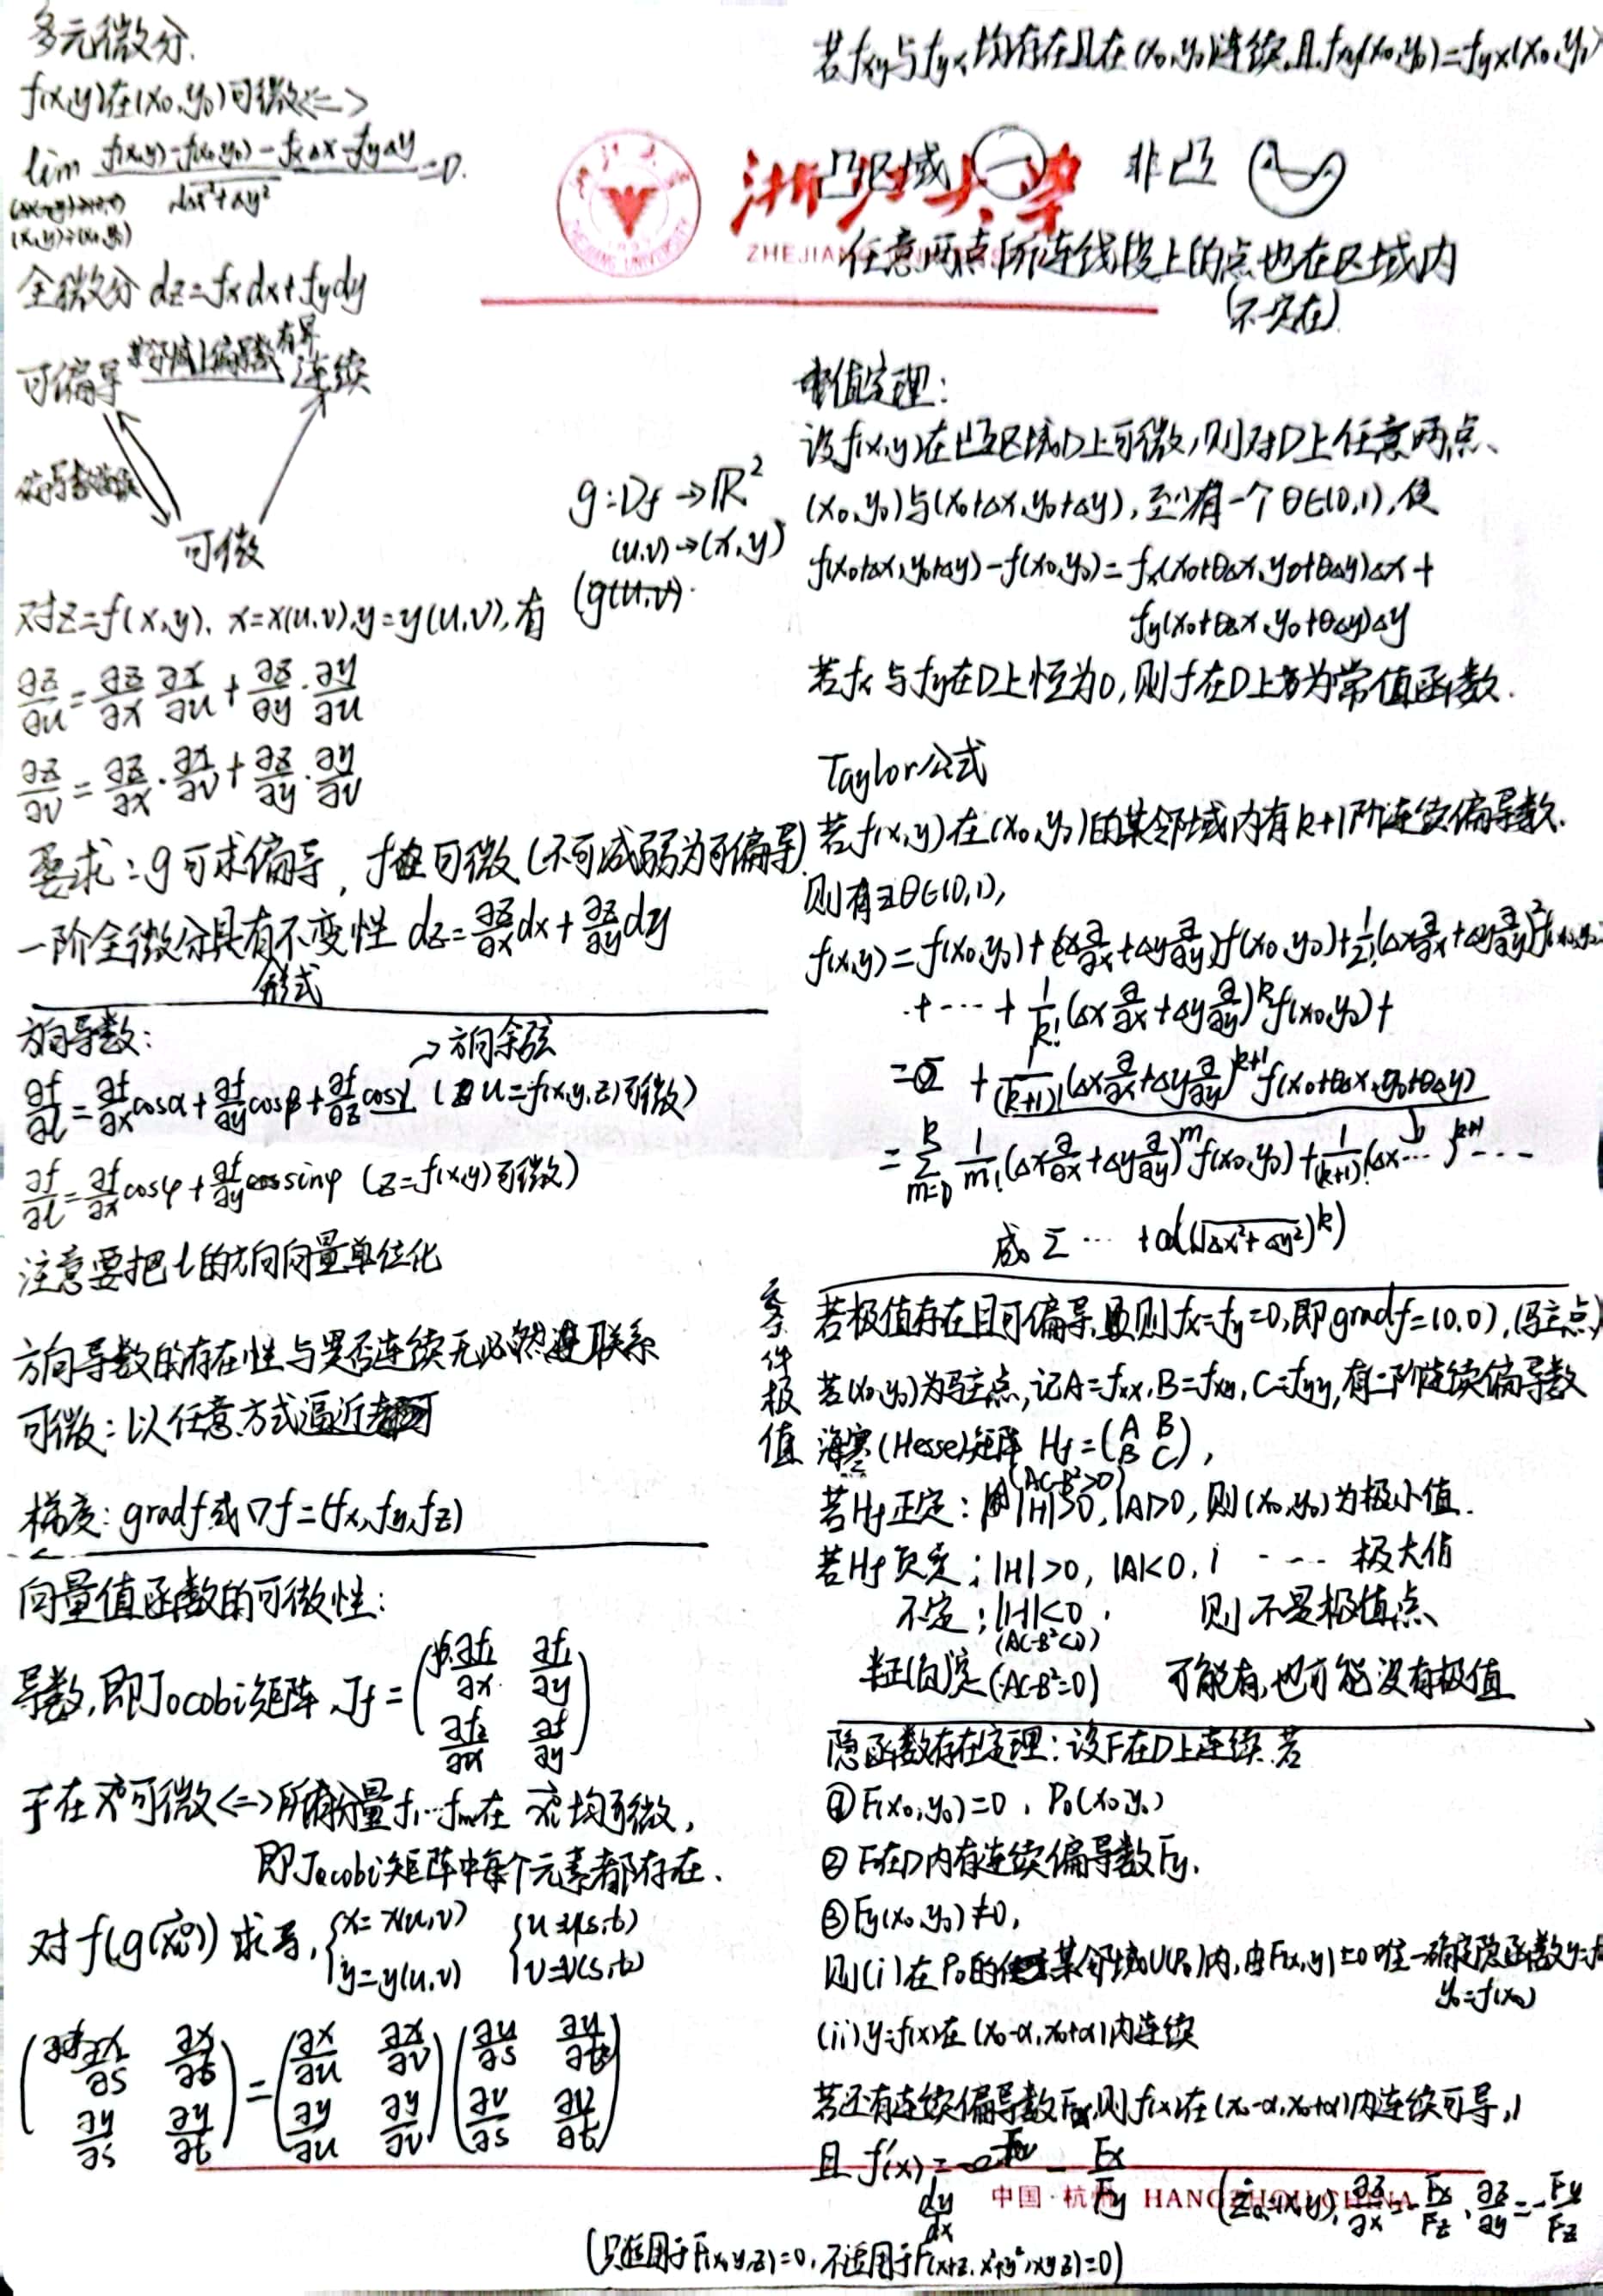 多元微分.
f(x,y)在(x₀,y₀)可微<=>
lim f(x,y)-f(x₀,y₀)-fxΔx-fyΔy / √Δx²+Δy² =0.
(x,y)→(x₀,y₀)
全微分 dz=fxdx+fydy
某邻域上偏导数有界
可偏导 连续
偏导数连续
可微
g:Df→ℝ²
(u,v)→(x,y)
(g(u,v).
对z=f(x,y). x=x(u,v),y=y(u,v),有
∂z/∂u=∂z/∂x ∂x/∂u+∂z/∂y·∂y/∂u
∂z/∂v=∂z/∂x·∂x/∂v+∂z/∂y·∂y/∂v
要求:g可求偏导,f可微(不可减弱为可偏导)
一阶全微分具有不变性 dz=∂z/∂x dx+∂z/∂y dy
形式
方向导数:
→方向余弦
∂f/∂l=∂f/∂x cosα+∂f/∂y cosβ+∂f/∂z cosγ (u=f(x,y,z)可微)
∂f/∂l=∂f/∂x cosφ+∂f/∂y sinφ (z=f(x,y)可微)
注意要把l的方向向量单位化
方向导数的存在性与是否连续无必然联系
可微:以任意方式逼近都可
梯度:gradf或∇f=(fx,fy,fz)
向量值函数的可微性:
导数,即Jocobi矩阵,Jf=(∂f₁/∂x ∂f₁/∂y
∂f₂/∂x ∂f/∂y)
f在x⃗可微<=>所有分量f₁…fm在x⃗均可微,
即Jacobi矩阵中每个元素都存在.
对f(g(x⃗))求导, {x=x(u,v) {u=u(s,t)
y=y(u,v) v=v(s,t)
(∂x/∂s ∂x/∂t = (∂x/∂u ∂x/∂v (∂u/∂s ∂u/∂t
∂y/∂s ∂y/∂t) ∂y/∂u ∂y/∂v) ∂v/∂s ∂v/∂t)
若fxy与fyx均存在且在(x₀,y₀)连续,且fxy(x₀,y₀)=fyx(x₀,y₀)
浙江大学
ZHEJIANG UNIVERSITY
凸区域 非凸
任意两点所连线段上的点也在区域内
(不一定在)
中值定理:
设f(x,y)在凸区域D上可微,则对D上任意两点、
(x₀,y₀)与(x₀+Δx,y₀+Δy),至少有一个θ∈(0,1),使
f(x₀+Δx,y₀+Δy)-f(x₀,y₀)=fx(x₀+θΔx,y₀+θΔy)Δx+
fy(x₀+θΔx,y₀+θΔy)Δy
若fx与fy在D上恒为0,则f在D上为常值函数.
Taylor公式
若f(x,y)在(x₀,y₀)的某邻域内有k+1阶连续偏导数.
则有∃θ∈(0,1),
f(x,y)=f(x₀,y₀)+(Δx∂/∂x+Δy∂/∂y)f(x₀,y₀)+1/2!(Δx∂/∂x+Δy∂/∂y)²f(x₀,y₀)
+…+1/k!(Δx∂/∂x+Δy∂/∂y)ᵏf(x₀,y₀)+
+1/(k+1)!(Δx∂/∂x+Δy∂/∂y)ᵏ⁺¹f(x₀+θΔx,y₀+θΔy)
=Σ(m=0→k) 1/m!(Δx∂/∂x+Δy∂/∂y)ᵐf(x₀,y₀)+1/(k+1)!(Δx…)ᵏ⁺¹…
或Σ…+o((√Δx²+Δy²)ᵏ)
条件极值
若极值存在且可偏导,则fx=fy=0,即gradf=(0,0),(驻点)
若(x₀,y₀)为驻点,记A=fxx,B=fxy,C=fyy,有二阶连续偏导数
海塞(Hesse)矩阵 Hf=(A B
B C),
(AC-B²>0)
若Hf正定:|H|>0,|A|>0,则(x₀,y₀)为极小值.
若Hf负定;|H|>0,|A|<0,…极大值
不定;|H|<0, 则不是极值点
(AC-B²<0)
半正(负)定(AC-B²=0) 可能有,也可能没有极值
隐函数存在定理:设F在D上连续.若
①F(x₀,y₀)=0,P₀(x₀,y₀)
②F在D内有连续偏导数Fy.
③Fy(x₀,y₀)≠0,
则(i)在P₀的某邻域U(P₀)内,由F(x,y)=0唯一确定隐函数y=f
y₀=f(x₀)
(ii)y=f(x)在(x₀-α,x₀+α)内连续
若还有连续偏导数Fx,则f(x)在(x₀-α,x₀+α)内连续可导,
且f'(x)=-Fx/Fy
dy/dx
中国·杭州 HANGZHOU·CHINA
(z=(x,y),∂z/∂x=-Fx/Fz,∂z/∂y=-Fy/Fz
(只适用于F(x,y,z)=0,不适用于F(x+z,x²+y²,xyz)=0)